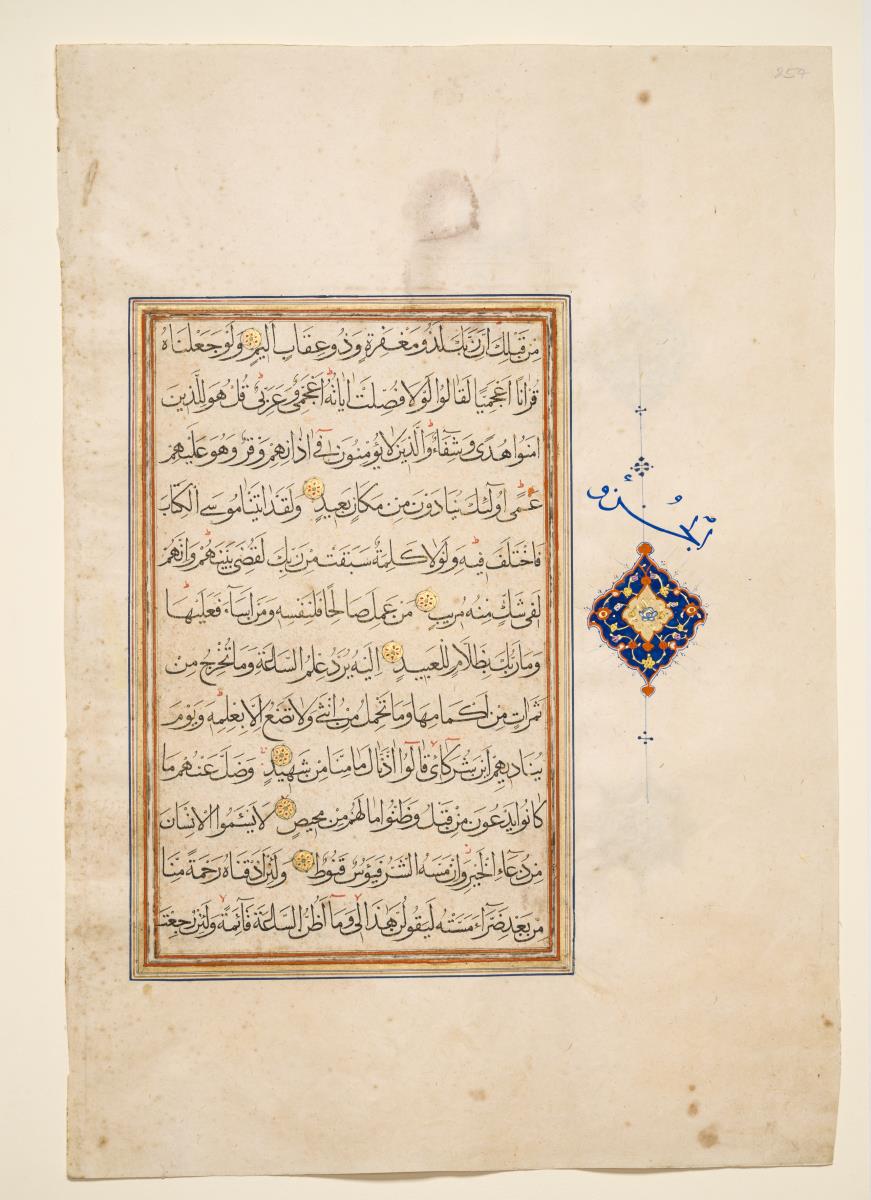 مِنْ قَبْلِكَ اِنَّ رَبَّكَ لَذُو مَغْفِرَةٍ وَذُو عِقَابٍ اَلِيمٍ وَلَوْ جَعَلْنَاهُ
قُرْانًا اَعْجَمِيًّا لَقَالُوا لَوْلَا فُصِّلَتْ ايَاتُهُ ءَاَعْجَمِيٌّ وَعَرَبِيٌّ قُلْ هُوَ لِلَّذِينَ
امَنُوا هُدًى وَشِفَآءٌ وَالَّذِينَ لَا يُؤْمِنُونَ فِي اذَانِهِمْ وَقْرٌ وَهُوَ عَلَيْهِمْ
عَمًى اُولَئِكَ يُنَادَوْنَ مِنْ مَكَانٍ بَعِيدٍ وَلَقَدْ اتَيْنَا مُوسَى الْكِتَابَ
فَاخْتُلِفَ فِيهِ وَلَوْلَا كَلِمَةٌ سَبَقَتْ مِنْ رَبِّكَ لَقُضِيَ بَيْنَهُمْ وَاِنَّهُمْ
لَفِي شَكٍّ مِنْهُ مُرِيبٍ مَنْ عَمِلَ صَالِحًا فَلِنَفْسِهِ وَمَنْ اَسَآءَ فَعَلَيْهَا
وَمَا رَبُّكَ بِظَلَّامٍ لِلْعَبِيدِ اِلَيْهِ يُرَدُّ عِلْمُ السَّاعَةِ وَمَا تَخْرُجُ مِنْ
ثَمَرَاتٍ مِنْ اَكْمَامِهَا وَمَا تَحْمِلُ مِنْ اُنْثَى وَلَا تَضَعُ اِلَّا بِعِلْمِهِ وَيَوْمَ
يُنَادِيهِمْ اَيْنَ شُرَكَائِ قَالُوا اذَنَّاكَ مَا مِنَّا مِنْ شَهِيدٍ وَضَلَّ عَنْهُمْ مَا
كَانُوا يَدْعُونَ مِنْ قَبْلُ وَظَنُّوا مَا لَهُمْ مِنْ مَحِيصٍ لَا يَسْئَمُ الْاِنْسَانُ
مِنْ دُعَآءِ الْخَيْرِ وَاِنْ مَسَّهُ الشَّرُّ فَيَؤُسٌ قَنُوطٌ وَلَئِنْ اَذَقْنَاهُ رَحْمَةً مِنَّا
مِنْ بَعْدِ ضَرَّآءَ مَسَّتْهُ لَيَقُولَنَّ هَذَا لِي وَمَآ اَظُنُّ السَّاعَةَ قَآئِمَةً وَلَئِنْ رُجِعْتُ